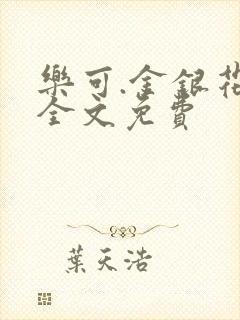 樂可.金銀花
全文免費
葉天浩